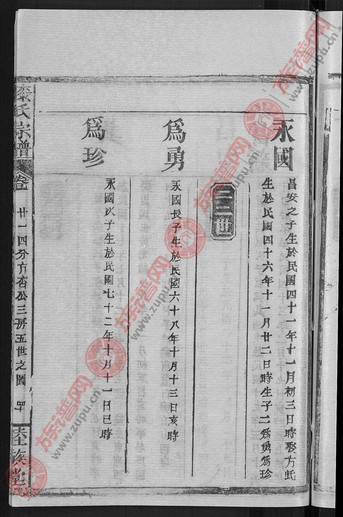 永國
昌安之子生於民國四十一年十一月初三日時娶方氏
生於民國四十六年十一月廿二日時生子二為勇為珍
三世
為勇
永國長子生於民國六十八年十月十三日亥時
為珍
永國次子生於民國七十二年十月十一日巳時
氏宗譜 卷
廿一四分方省公三房五世之國
族堂
族譜网
www.zupu.cn